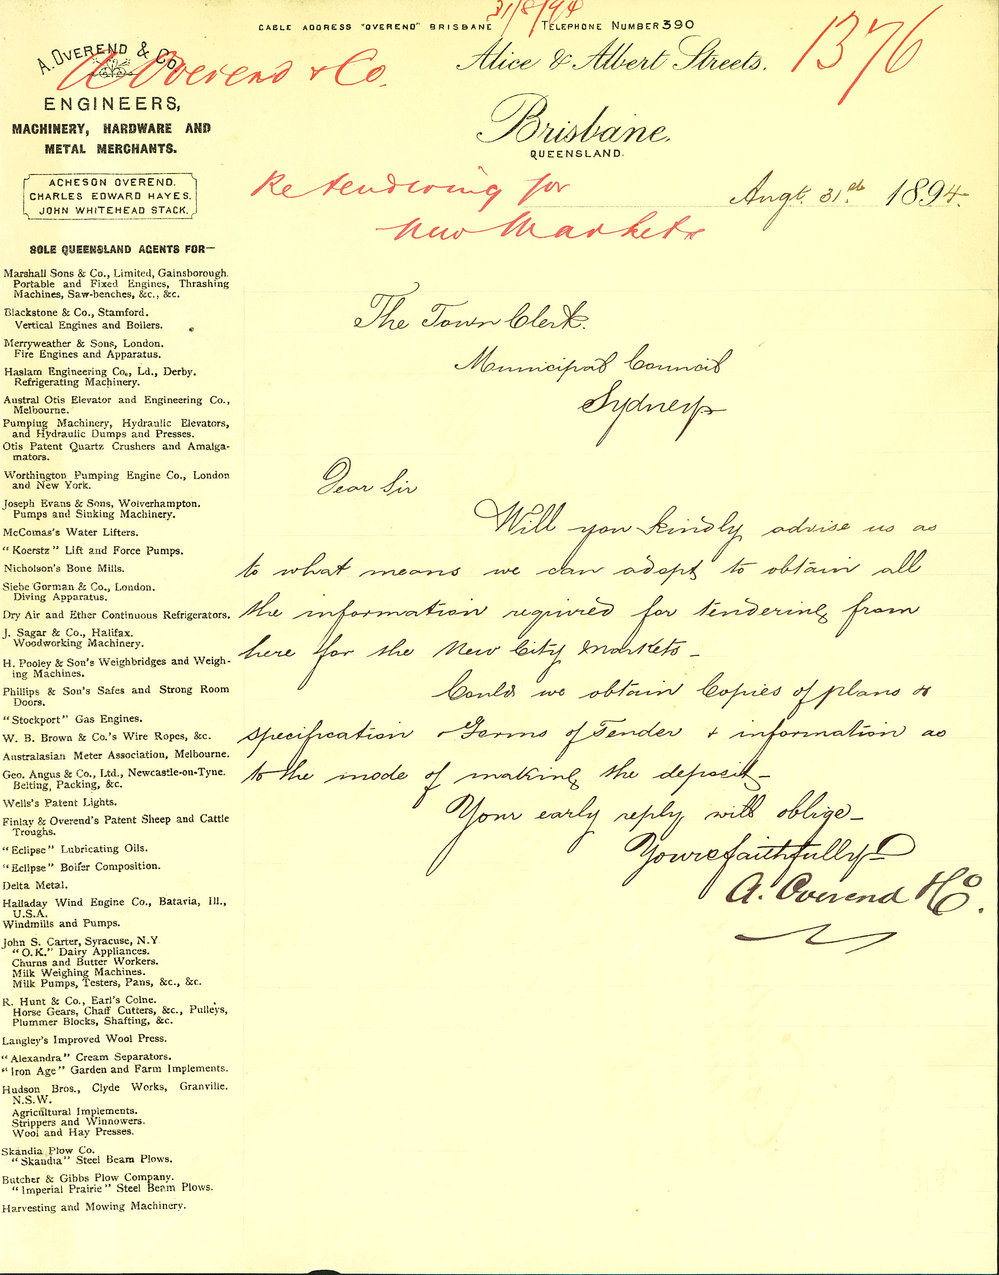 31/8/94
CABLE ADDRESS "OVEREND" BRISBANE
TELEPHONE NUMBER 390
1376
A. OVEREND & CO.
A Overend & Co.
ENGINEERS,
MACHINERY, HARDWARE AND
METAL MERCHANTS.
ACHESON OVEREND.
CHARLES EDWARD HAYES.
JOHN WHITEHEAD STACK.
Alice & Albert Streets.
Brisbane,
QUEENSLAND.
Re tendering for
New Markets
Augt. 31st. 1894.
SOLE QUEENSLAND AGENTS FOR—
Marshall Sons & Co., Limited, Gainsborough.
Portable and Fixed Engines, Thrashing
Machines, Saw-benches, &c., &c.
Blackstone & Co., Stamford.
Vertical Engines and Boilers.
Merryweather & Sons, London.
Fire Engines and Apparatus.
Haslam Engineering Co., Ld., Derby.
Refrigerating Machinery.
Austral Otis Elevator and Engineering Co.,
Melbourne.
Pumping Machinery, Hydraulic Elevators,
and Hydraulic Dumps and Presses.
Otis Patent Quartz Crushers and Amalga-
mators.
Worthington Pumping Engine Co., London
and New York.
Joseph Evans & Sons, Wolverhampton.
Pumps and Sinking Machinery.
McComas's Water Lifters.
"Koerstz" Lift and Force Pumps.
Nicholson's Bone Mills.
Siebe Gorman & Co., London.
Diving Apparatus.
Dry Air and Ether Continuous Refrigerators.
J. Sagar & Co., Halifax.
Woodworking Machinery.
H. Pooley & Son's Weighbridges and Weigh-
ing Machines.
Phillips & Son's Safes and Strong Room
Doors.
"Stockport" Gas Engines.
W. B. Brown & Co.'s Wire Ropes, &c.
Australasian Meter Association, Melbourne.
Geo. Angus & Co., Ltd., Newcastle-on-Tyne.
Belting, Packing, &c.
Wells's Patent Lights.
Finlay & Overend's Patent Sheep and Cattle
Troughs.
"Eclipse" Lubricating Oils.
"Eclipse" Boiler Composition.
Delta Metal.
Halladay Wind Engine Co., Batavia, Ill.,
U.S.A.
Windmills and Pumps.
John S. Carter, Syracuse, N.Y
"O.K." Dairy Appliances.
Churns and Butter Workers.
Milk Weighing Machines.
Milk Pumps, Testers, Pans, &c., &c.
R. Hunt & Co., Earl's Colne.
Horse Gears, Chaff Cutters, &c., Pulleys,
Plummer Blocks, Shafting, &c.
Langley's Improved Wool Press.
"Alexandra" Cream Separators.
"Iron Age" Garden and Farm Implements.
Hudson Bros., Clyde Works, Granville.
N.S.W.
Agricultural Implements.
Strippers and Winnowers.
Wool and Hay Presses.
Skandia Plow Co.
"Skandia" Steel Beam Plows.
Butcher & Gibbs Plow Company.
"Imperial Prairie" Steel Beam Plows.
Harvesting and Mowing Machinery.
The Town Clerk.
Municipal Council
Sydney
Dear Sir
Will you kindly advise us as
to what means we can adopt to obtain all
the information required for tendering from
here for the New City Markets—
Could we obtain Copies of plans &
specification & Forms of Tender & information as
to the mode of making the deposit—
Your early reply will oblige—
Yours faithfully
A. Overend & Co.